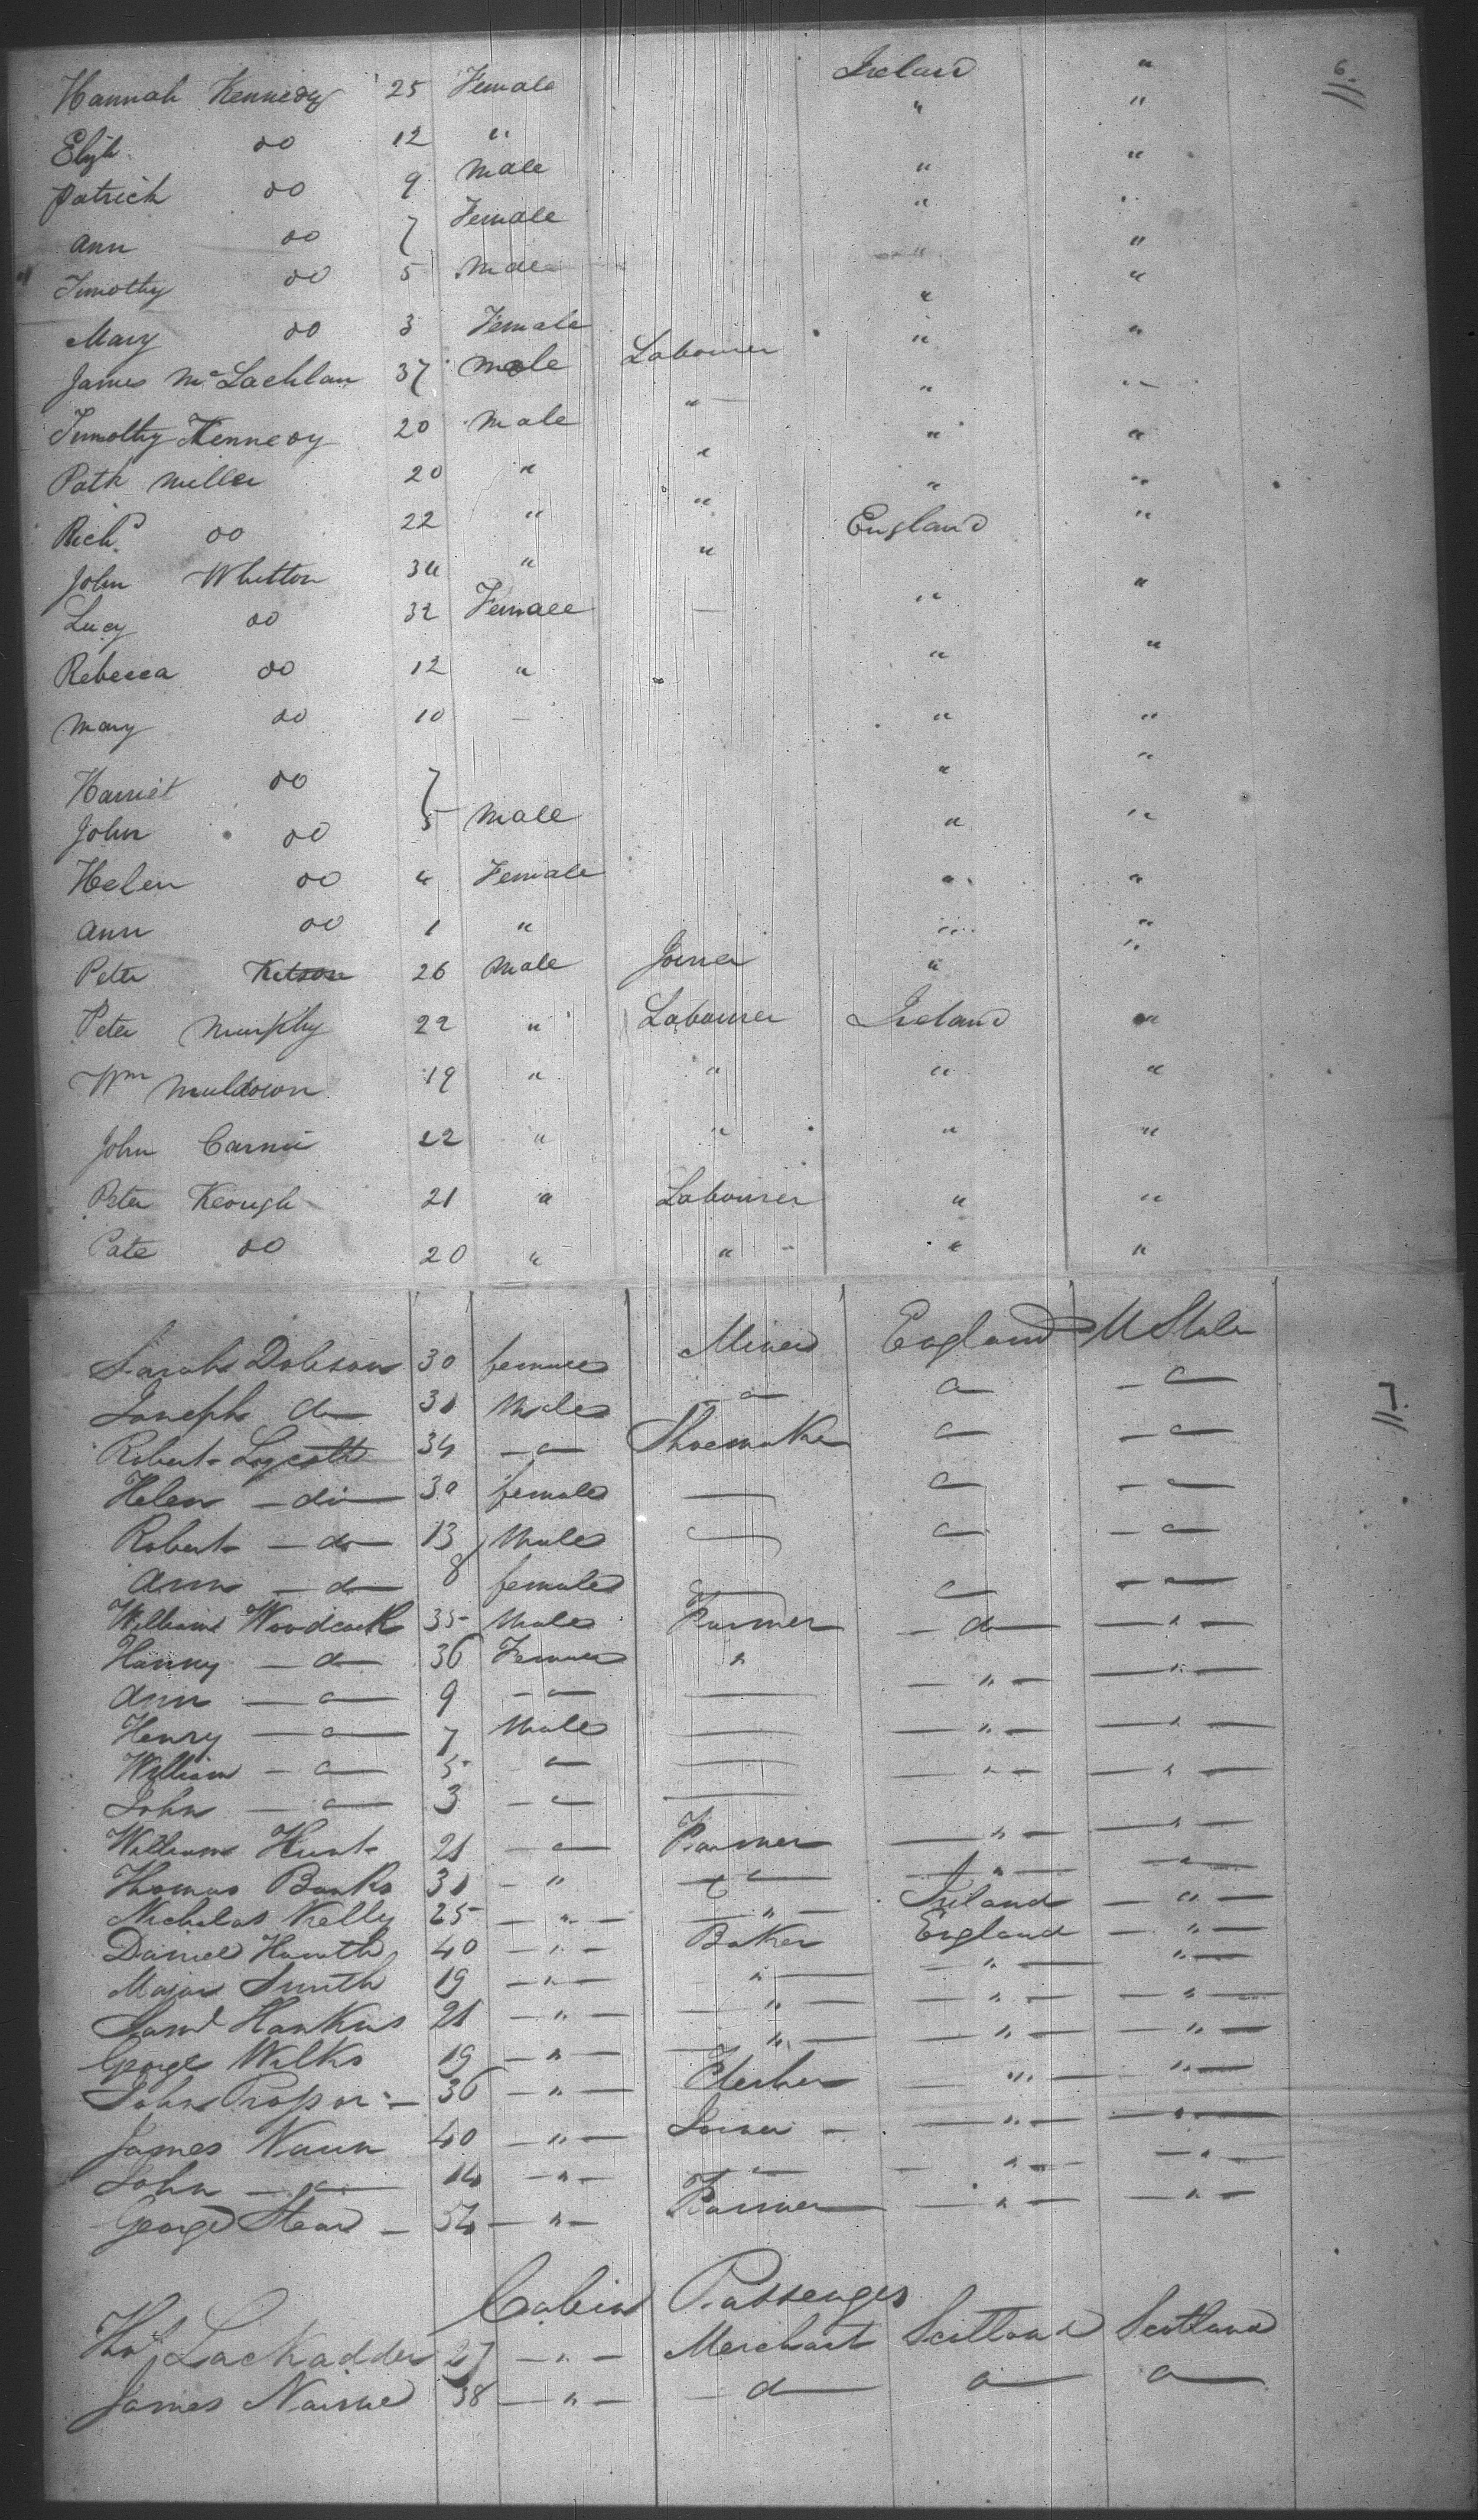 6.
Hannah Kennedy 25 Female Ireland "
Elizh. do 12 " " "
Patrick do 9 Male " "
Ann do 7 Female " "
Timothy do 5 Male " "
Mary do 3 Female " "
James McLachlan 37 Male Labourer " "
Timothy Kennedy 20 Male " " "
Patk Miller 20 " " " "
Richd. do 22 " " " "
John Whitton 34 " " England "
Lucy do 32 Female — " "
Rebecca do 12 " " "
Mary do 10 — " "
Harriet do 7 " "
John do 5 Male " "
Helen do 4 Female " "
Ann do 1 " " "
Peter Kitson 26 Male Joiner " "
Peter Murphy 22 " Labourer Ireland "
Wm Muldown 19 " " " "
John Carnie 22 " " " "
Peter Keough 21 " Labourer " "
Pate do 20 " " " "
7.
Sarah Dobson 30 female Miner England U State
Joseph do 31 Male " " "
Robert 34 " Shoemaker " "
Helen do 30 female — " "
Robert do 13 Male — " "
Ann do 8 female — " "
William Woodcock 35 Male Farmer do "
Hanny do 36 Female " " "
Ann " 9 " — " "
Henry " 7 Male — " "
William " 5 " — " "
John " 3 " —
William Hunt 21 " Farmer " "
Thomas Banks 31 " " " "
Nicholas Kelly 25 " " Ireland "
Daniel Howith 40 " Baker England "
Major Smith 19 " " " "
Saml Hankins 21 " " " "
George Wilks 19 " " " "
John Prosper 36 " " "
James Nunn 40 " Joiner " "
John " 14 " " " "
George Stead 54 " Farmer " "
Cabin Passenges
Thos Lackadder 27 " Merchant Scotland Scotland
James Nairne 38 " do " "